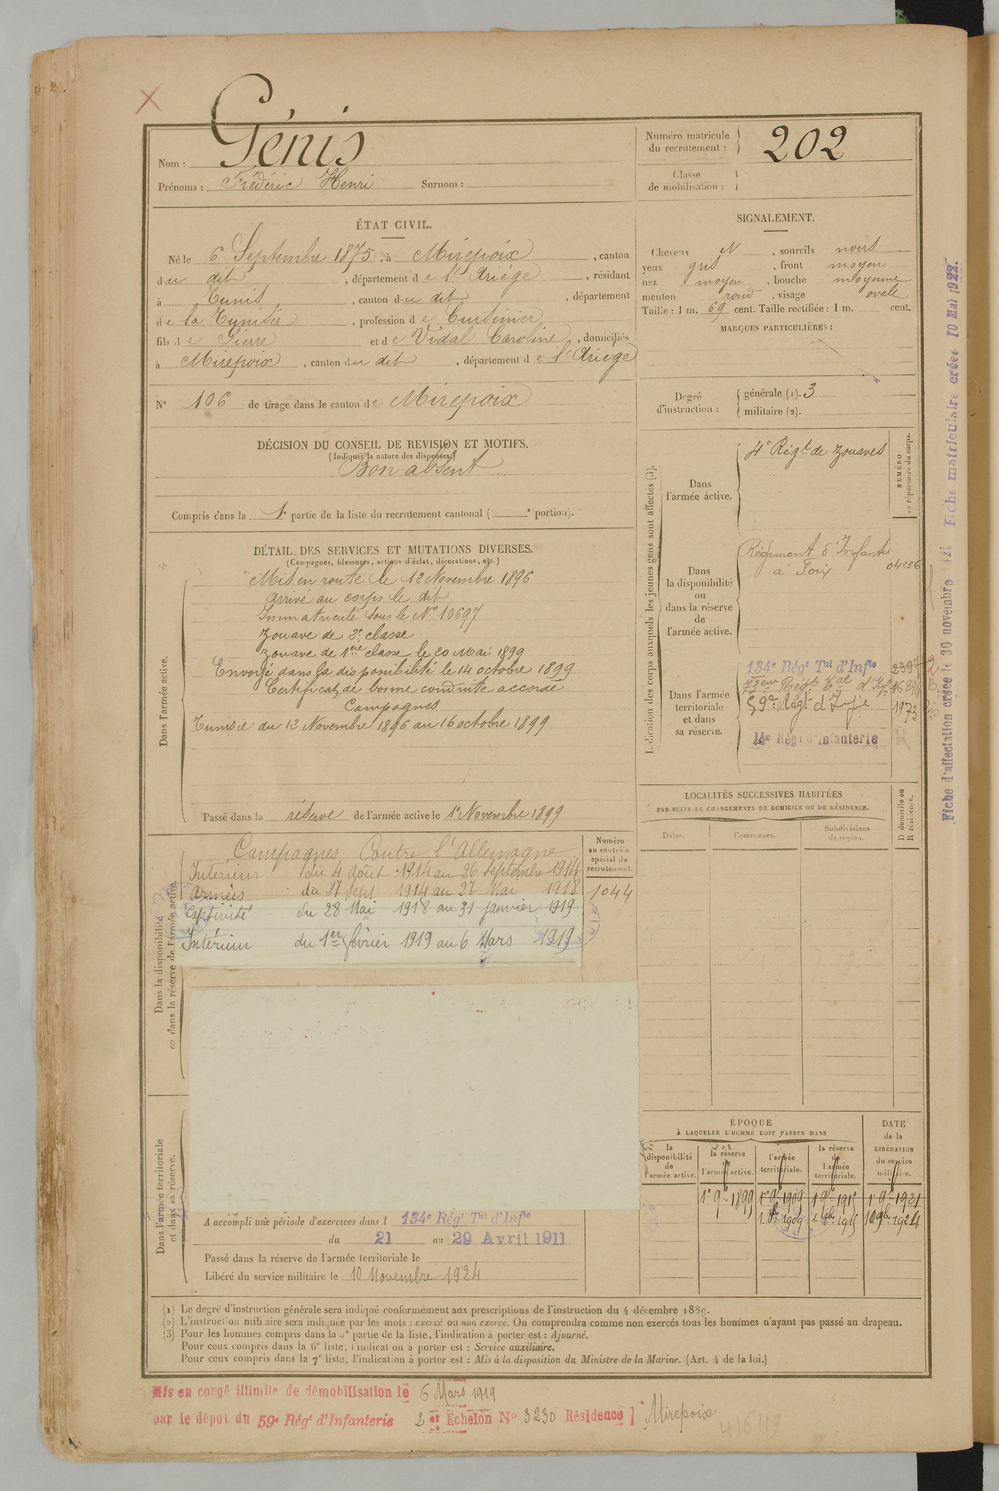 Nom : Génis
Prénoms : Frédéric Henri Surnom :
Numéro matricule du recrutement : 202
Classe de mobilisation :
ÉTAT CIVIL.
Né le 6 Septembre 1875, à Mirepoix, canton
du dit, département de l'Ariège, résidant
à Tunis, canton du dit, département
de la Tunisie, profession de Cuisinier
fils de Pierre et de Vidal Caroline, domiciliés
à Mirepoix, canton du dit, département de l'Ariège
N° 106 de tirage dans le canton de Mirepoix
SIGNALEMENT.
Cheveux N, sourcils noirs
yeux gris, front moyen
nez moyen, bouche moyenne
menton rond, visage ovale
Taille : 1 m. 69 cent. Taille rectifiée : 1 m. cent.
MARQUES PARTICULIÈRES :
Degré d'instruction : générale (1). 3
militaire (2).
DÉCISION DU CONSEIL DE REVISION ET MOTIFS.
(Indiquer la nature des dispenses)
Bon absent
Compris dans la 1e partie de la liste du recrutement cantonal ( e portion).
DÉTAIL DES SERVICES ET MUTATIONS DIVERSES.
(Campagnes, blessures, actions d'éclat, décorations, etc.)
Dans l'armée active.
Mis en route le 12 Novembre 1896
Arrivé au corps le dit
Immatriculé sous le N° 10697
Zouave de 2e classe
Zouave de 1ère classe le 20 Mai 1899
Envoyé dans la disponibilité le 14 octobre 1899
Certificat de bonne conduite accordé
Campagnes
Tunisie du 12 Novembre 1896 au 16 octobre 1899
Passé dans la réserve de l'armée active le 1er Novembre 1899
Indication des corps auxquels les jeunes gens sont affectés (3).
NUMÉRO au répertoire du corps.
Dans l'armée active.
4e Régt de Zouaves
Dans la disponibilité ou dans la réserve de l'armée active.
Régiment d'Infanterie
à Foix 04236
Dans l'armée territoriale et dans sa réserve.
134e Régt Tal d'Infie
59e Régt d'Infie 1973
14e Régt d'Infanterie
LOCALITÉS SUCCESSIVES HABITÉES
PAR SUITE DE CHANGEMENTS DE DOMICILE OU DE RÉSIDENCE.
Dates. Communes. Subdivisions de région. D domicile ou R résidence.
Dans la disponibilité ou dans la réserve de l'armée active.
Numéro au contrôle spécial du recrutement.
1044
Campagnes Contre l'Allemagne
Intérieur du 4 Août 1914 au 26 septembre 1914
Armées du 27 sept 1914 au 27 Mai 1918
Captivité du 28 Mai 1918 au 31 janvier 1919
Intérieur du 1er février 1919 au 6 Mars 1919
Dans l'armée territoriale et dans sa réserve.
A accompli une période d'exercices dans l 134e Régt Tal d'Infie
du 21 au 29 Avril 1911
Passé dans la réserve de l'armée territoriale le
Libéré du service militaire le 10 Novembre 1924
ÉPOQUE
À LAQUELLE L'HOMME DOIT PASSER DANS
la disponibilité de l'armée active.
la réserve de l'armée active.
l'armée territoriale.
la réserve de l'armée territoriale.
DATE de la LIBÉRATION du service militaire.
1er 9bre 1899 1er 9bre 1909 1er 9bre 1915 1er 9bre 1921
(1) Le degré d'instruction générale sera indiqué conformément aux prescriptions de l'instruction du 4 décembre 1889.
(2) L'instruction militaire sera indiquée par les mots : exercé ou non exercé. On comprendra comme non exercés tous les hommes n'ayant pas passé au drapeau.
(3) Pour les hommes compris dans la 5e partie de la liste, l'indication à porter est : Ajourné.
Pour ceux compris dans la 6e liste, l'indication à porter est : Service auxiliaire.
Pour ceux compris dans la 7e liste, l'indication à porter est : Mis à la disposition du Ministre de la Marine. (Art. 4 de la loi.)
Mis en congé illimité de démobilisation le 6 Mars 1919
par le dépôt du 59e Régt d'Infanterie 2 Echelon N° 3230 Résidence Mirepoix
Fiche d'affectation créée le 30 novembre 1921 Fiche matriculaire créée 10 Mai 1922.